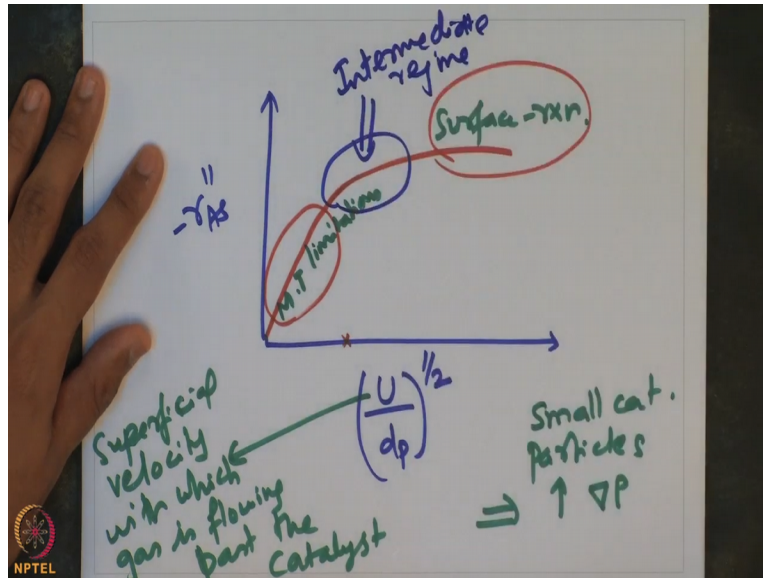 Intermediate
regime
Surface-rxn.
-r"AS
M.T limitations
(U/dp)^1/2
Superficial
velocity
with which
gas is flowing
past the
catalyst
Small cat.
particles
⇒ ↑ ∇P
NPTEL